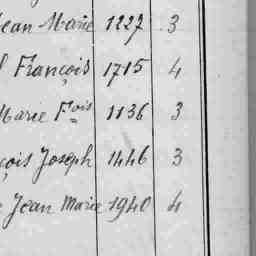 Jean Marie 1227 3
François 1715 4
Marie Fois 1136 3
çois Joseph 1446 3
Jean Marie 1940 4